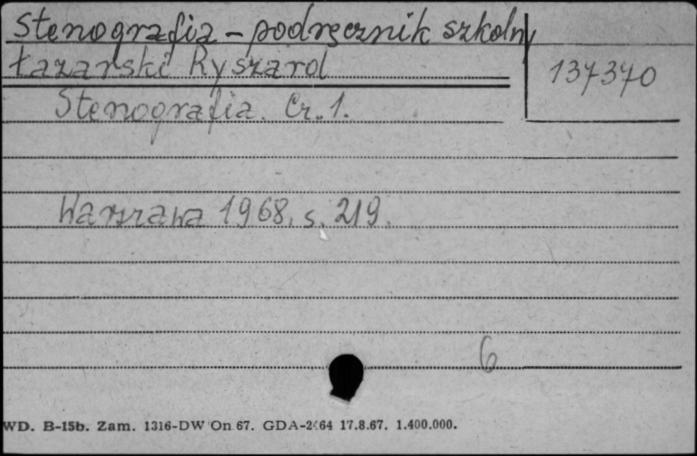 Stenografia - podręcznik szkolny
Łazarski Ryszard
137370
Stenografia. Cz. 1.
Warszawa 1968, s. 219.
6
WD. B-15b. Zam. 1316-DW On 67. GDA-2064 17.8.67. 1.400.000.